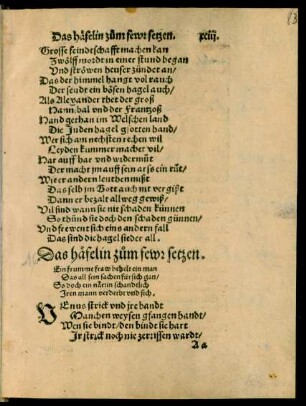 Das häfelin zům fewr setzen. xciij.
Grosse feindtschafft machen kan
Zwölff mordt in einer stund began
Vnd ströwen heuser zündet an/
Das der himmel hangt vol rauch
Der seudt ein bösen hagel auch/
Als Alexander thet der groß
Hannibal vnd der Frantzoß
Hand gethan im Welschen land
Die Juden hagel gsotten hand/
Wer sich am nechsten rechen wil
Leyden kummer macher vil/
Har auff har vnd widermůt
Der macht jm auff sein arß ein růt/
Wer andern leuthen
Das selb jm Gott auch nit vergißt
Dann er bezalt all weg gewiß/
Vil sind wann sie nit schaden künnen
So thůnd sie doch den schaden günnen/
Vnd frewent sich eins andern fall
Das sind die hagel sieder all.
Das häfelin zům fewr setzen.
Ein frumme fraw behelt ein man
Das all sein sachen für sich gan/
So doch ein närrin schandtlich
Iren mann verderbt vnd sich.
VEnus strick vnd jre bandt
Manchen weysen gfangen handt/
Wen sie bindt/ den bindt sie hart
Ir strick noch nie zerrissen wardt/
Aa